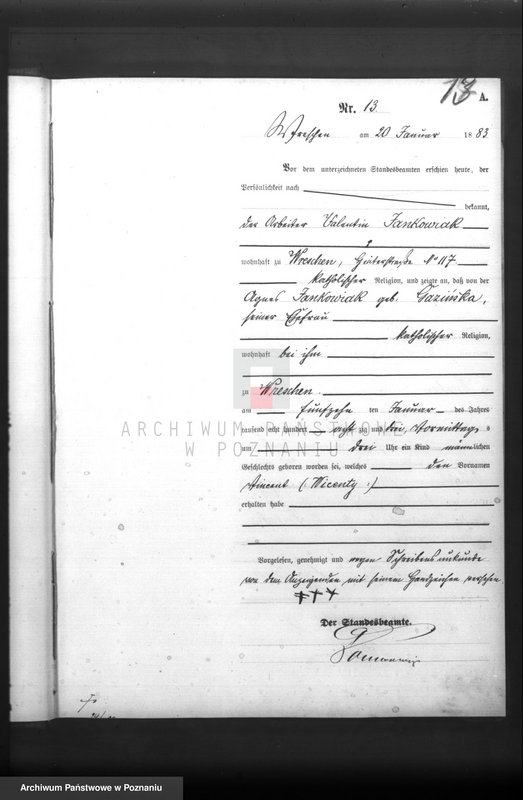 13 A.
Nr. 13
Wreschen am 20 Januar 1883
Vor dem unterzeichneten Standesbeamten erschien heute, der
Persönlichkeit nach
bekannt,
der Arbeiter Valentin Jankowiak
wohnhaft zu Wreschen, Hinterstraße No 117
katholischer Religion, und zeigte an, daß von der
Agnes Jankowiak geb. Gazińska,
seiner Ehefrau
katholischer Religion,
wohnhaft bei ihm
zu Wreschen
am fünfzehn ten Januar des Jahres
tausend acht hundert acht zig und drei, Vormittags
um drei Uhr ein Kind männlichen
Geschlechts geboren worden sei, welches den Vornamen
Vincent (: Wicenty :)
erhalten habe
Vorgelesen, genehmigt und wegen Schreibensunkunde
von dem Anzeigenden mit seinem Handzeichen versehen
+++
Der Standesbeamte.
ARCHIWUM PAŃSTWOWE
W POZNANIU
Archiwum Państwowe w Poznaniu